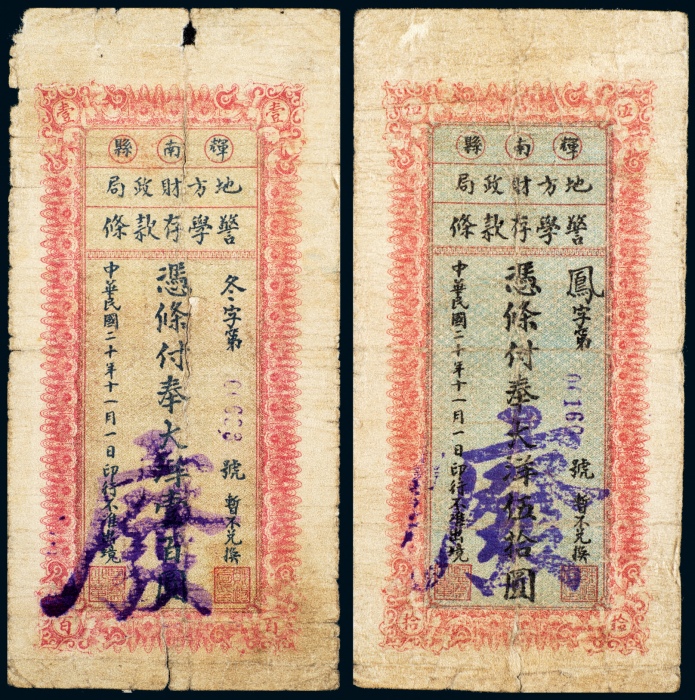 壹 壹
輝南縣
地方財政局
警學存款條
冬字第
號 暫不兌換
憑條付奉大洋壹百圓
中華民國二十年十一月一日印行不准出境
廢
百 百
伍 伍
輝南縣
地方財政局
警學存款條
鳳字第
號 暫不兌換
憑條付奉大洋伍拾圓
中華民國二十年十一月一日印行不准出境
廢
拾 拾